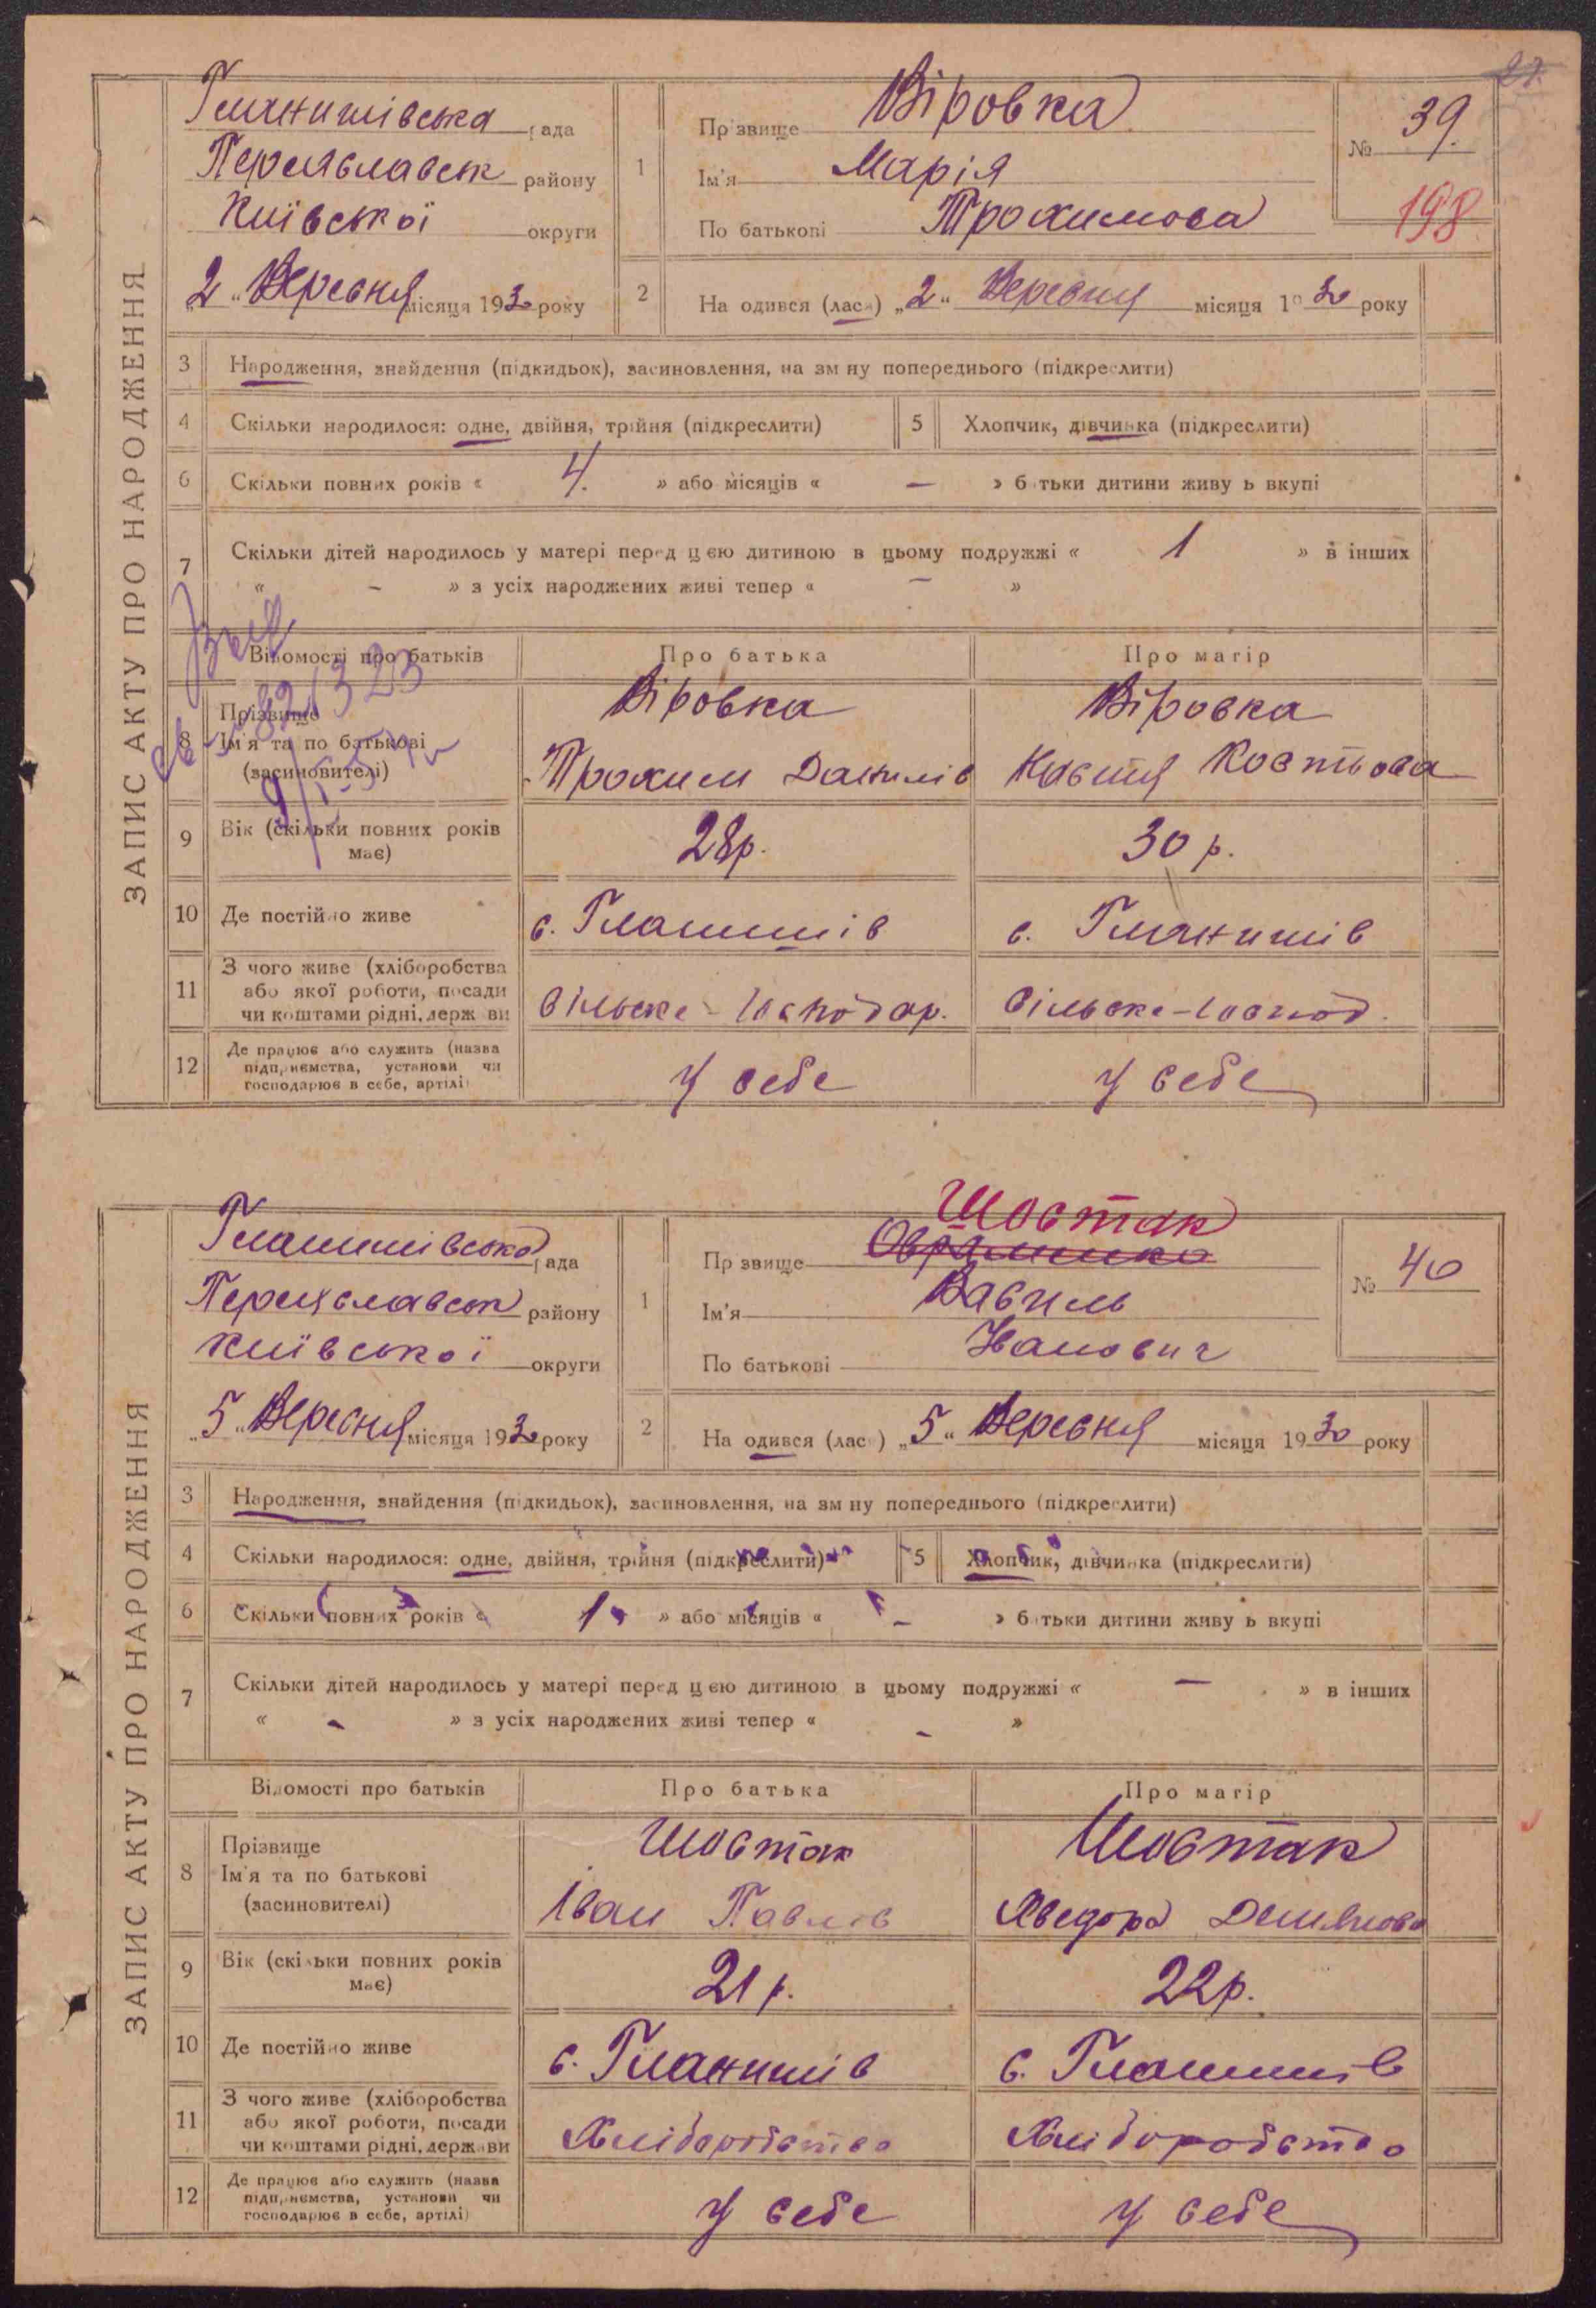 27.
ЗАПИС АКТУ ПРО НАРОДЖЕННЯ
Гланишівська рада
Переяславськ району
Київської округи
„2“ Вересня місяця 1930 року
1 Прізвище Віровка
Ім'я Марія
По батькові Трохимова
№ 39.
198
2 На одився (лась) „2“ Вересня місяця 1930 року
3 Народження, знайдення (підкидьок), засиновлення, на зм ну попереднього (підкреслити)
4 Скільки народилося: одне, двійня, трійня (підкреслити) 5 Хлопчик, дівчинка (підкреслити)
6 Скільки повних років « 4. » або місяців « — » б тьки дитини живу ь вкупі
7 Скільки дітей народилось у матері перед цією дитиною в цьому подружжі « 1 » в інших
« - » з усіх народжених живі тепер « — »
Відомості про батьків Про батька Про матір
8 Прізвище Віровка Віровка
Ім'я та по батькові Трохим Данилів Костьова
(засиновителі)
9 Вік (скільки повних років має) 28р. 30 р.
10 Де постійно живе с. Гланишів с. Гланишів
11 З чого живе (хліборобства
або якої роботи, посади
чи коштами рідні, держ ви Сільське-господар. Сільське-господ.
12 Де працює або служить (назва
підприємства, установи чи
господарює в себе, артілі) У себе У себе
ЗАПИС АКТУ ПРО НАРОДЖЕННЯ
Гланишівська рада
Переяславськ району
Київської округи
„5“ Вересня місяця 1930 року
Шостак
1 Пр звище Овраменко
Ім'я Василь
По батькові Іванович
№ 40
2 На одився (лась) „5“ Вересня місяця 1930 року
3 Народження, знайдення (підкидьок), засиновлення, на зм ну попереднього (підкреслити)
4 Скільки народилося: одне, двійня, трійня (підкреслити) 5 Хлопчик, дівчинка (підкреслити)
6 Скільки повних років « 1 » або місяців « — » б тьки дитини живу ь вкупі
7 Скільки дітей народилось у матері перед цією дитиною в цьому подружжі « — » в інших
« - » з усіх народжених живі тепер « - »
Відомості про батьків Про батька Про матір
8 Прізвище Шостак Шостак
Ім'я та по батькові Іван Павлів Явдора Демянова
(засиновителі)
9 Вік (скільки повних років має) 21 р. 22р.
10 Де постійно живе с. Гланишів с. Гланишів
11 З чого живе (хліборобства
або якої роботи, посади
чи коштами рідні, держави Хліборобство Хліборобство
12 Де працює або служить (назва
підприємства, установи чи
господарює в себе, артілі) У себе У себе